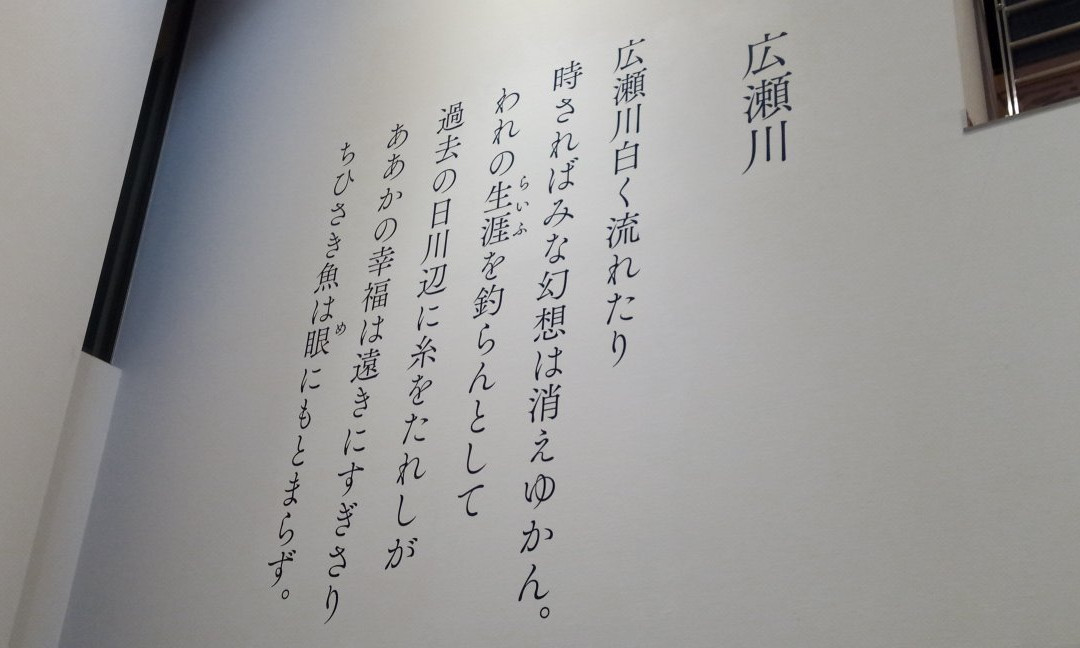 広瀬川
広瀬川白く流れたり
時さればみな幻想は消えゆかん。
われの生涯を釣らんとして
らいふ
過去の日川辺に糸をたれしが
ああかの幸福は遠きにすぎさり
ちひさき魚は眼にもとまらず。
め